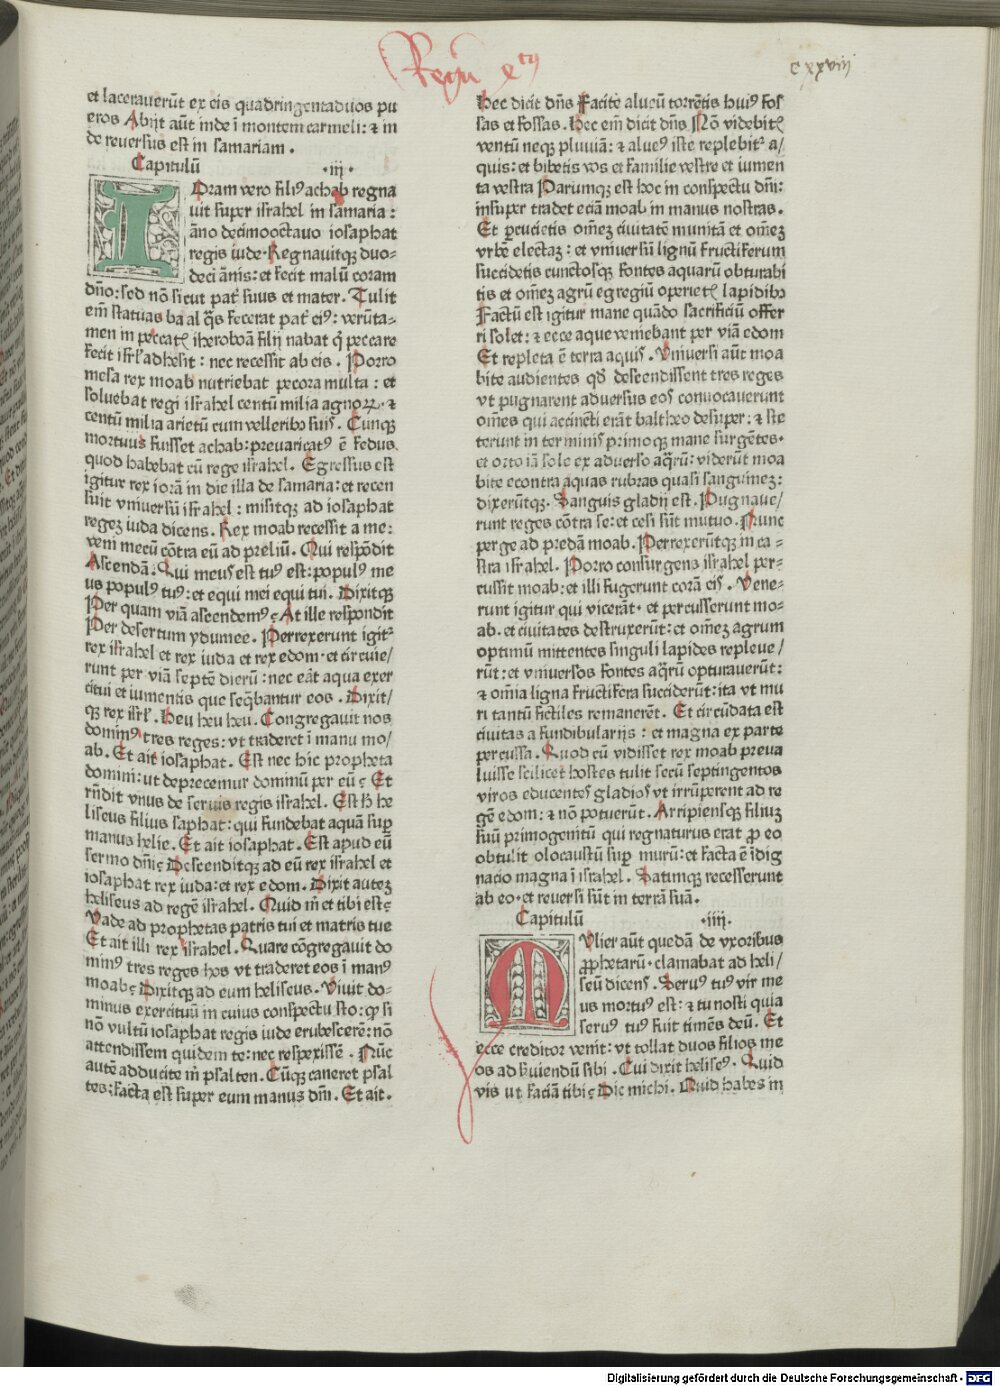 Regū 4tus
cxxviii
et laceraverūt ex eis quadringentaduos pu
eros Abijt aūt inde ī montem carmeli: ⁊ in
de reuersus est in samariam .
Capitulū ·iij·
IOram vero filiꝰ achab regna
uit super israhel in samaria :
āno decimooctauo iosaphat
regis iude· Regnauitqꝫ duo-
deci ānis: et fecit malū coram
dño: sed nō sicut patꝛ suus et mater . Tulit
em̄ statuas ba al q̄s fecerat patꝛ eiꝰ: verūta-
men in peccatꝭ iheroboā filij nabat qͥ peccare
fecit isrl̓ adhesit : nec recessit ab eis . Porro
mesa rex moab nutriebat pecora multa : et
soluebat regi israhel centū milia agnoꝝ · ⁊
centū milia arietū cum velleribꝰ suis . Cunqꝫ
mortuus fuisset achab: preuaricatꝰ ē fedus
quod habebat cū rege israhel . Egressus est
igitur rex iorā in die illa de samaria: et recen
suit vniuersū israhel : misitqꝫ ad iosaphat
regeꝫ iuda dicens . Rex moab recessit a me:
veni mecū cōtra eū ad preliū . Qui respōdit
Ascendā: Qui meus est tuꝰ est: populꝰ me
us populꝰ tuꝰ: et equi mei equi tui . Dixitqꝫ
Per quam viā ascendemꝰ ? At ille respondit
Per desertum ydumee . Perrexerunt igitꝛ
rex israhel et rex iuda et rex edom· et circuie/
runt per viā septē dierū : nec eāt aqua exer
citui et iumentis que seq̄bantur eos . Dixit/
qꝫ rex isrl̓ . Heu heu heu . Congregauit nos
dominꝰ tres reges: vt traderet ī manu mo/
ab . Et ait iosaphat . Est nec hic propheta
domini: ut deprecemur dominū per eū ? Et
rn̄dit vnus de seruis regis israhel . Est h̄ he
liseus filius saphat: qui fundebat aquā suꝑ
manus helie . Et ait iosaphat . Est apud eū
sermo dn̄i ? Descenditqꝫ ad eū rex israhel et
iosaphat rex iuda: et rex edom . Dixit auteꝫ
heliseus ad regē israhel . Quid m̄ et tibi est ?
Vade ad prophetas patris tui et matris tue
Et ait illi rex israhel . Quare cōgregauit do
minꝰ tres reges hos vt traderet eos ī manꝰ
moab ? Dixitqꝫ ad eum heliseus . Viuit do-
minus exercituū in cuius conspectu sto: ꝙ si
nō vultū iosaphat regis iude erubescerē: nō
attendissem quidem te: nec respexissē . Nūc
autē adducite m̄ psalten . Cūqꝫ caneret psal
tes: facta est super eum manus dn̄i . Et ait .
Hec dicit dn̄s Facite alueū torrētis huiꝰ fos
sas et fossas . Hec em̄ dicit dn̄s Nō videbitꝭ
ventū neqꝫ pluuiā: ⁊ alueꝰ iste replebitꝛ a/
quis: et bibetis vos et familie vestre et iumen
ta vestra Parumqꝫ est hoc in conspectu dn̄i:
insuper tradet eciā moab in manus nostras .
Et percucietis om̄eꝫ ciuitatē munitā et om̄eꝫ
vrbē electaꝫ : et vniuersū lignū fructiferum
succidetis cunctosqꝫ fontes aquarū obturabi
tis et om̄eꝫ agrū egregiū operietꝭ lapidibꝰ
Factū est igitur mane quādo sacrificiū offer
ri solet : ⁊ ecce aque veniebant per viā edom
Et repleta ē terra aquis . Vniuersi aūt moa
bite audientes qđ descendissent tres reges
vt pugnarent aduersus eos conuocauerunt
om̄es qui accincti erāt baltheo desuper: ⁊ ste
terunt in terminis primoqꝫ mane surgētes·
et orto iā sole ex aduerso aq̄rū: viderūt moa
bite econtra aquas rubras quasi sanguineꝫ:
dixerūtqꝫ . Sanguis gladij est . Pugnaue/
runt reges cōtra se: et cesi sūt mutuo . Nunc
perge ad predā moab . Perrexerūtqꝫ in ca-
stra israhel . Porro consurgens israhel per-
cussit moab: et illi fugerunt corā eis . Vene-
runt igitur qui vicerāt· et percusserunt mo-
ab . et ciuitates destruxerūt: et om̄eꝫ agrum
optimū mittentes singuli lapides repleue/
rūt: et vniuersos fontes aq̄rū opturauerūt:
⁊ om̄ia ligna fructifera succiderūt: ita vt mu
ri tantū fictiles remanerēt . Et circūdata est
ciuitas a fundibularijs : et magna ex parte
percussa . Quod cū vidisset rex moab preua
luisse scilicet hostes tulit secū septingentos
viros educentes gladios vt irrūperent ad re
gē edom: ⁊ nō potuerūt . Arripiensqꝫ filiuꝫ
suū primogenitū qui regnaturus erat ꝓ eo
obtulit olocaustū suꝑ murū: et facta ē īdig
nacio magna ī israhel . Statimqꝫ recesserunt
ab eo· et reuersi sūt in terrā suā .
Capitulū ·iiij·
MUlier aūt quedā de vxoribus
ꝓphetarū· clamabat ad heli/
seū dicens . Seruꝰ tuꝰ vir me
us mortuꝰ est: ⁊ tu nosti quia
seruꝰ tuꝰ fuit timēs deū . Et
ecce creditor venit: vt tollat duos filios me
os ad s̄uiendū sibi . Cui dixit heliseꝰ . Quid
vis ut faciā tibi ? Dic michi . Quid habes in
Digitalisierung gefördert durch die Deutsche Forschungsgemeinschaft - DFG